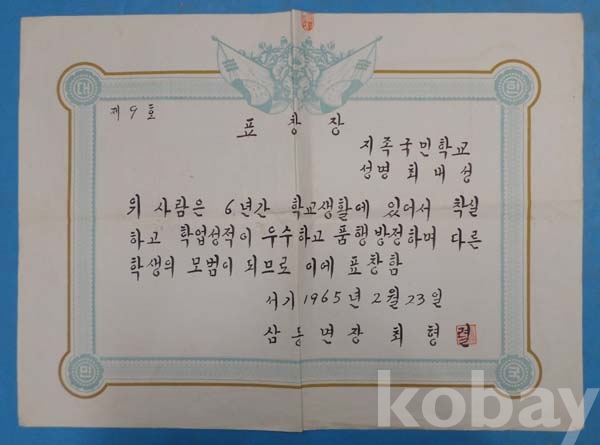 대 한
제 9 호
표 창 장
지족국민학교
성명 최 내 성
위 사람은 6년간 학교생활에 있어서 착실
하고 학업성적이 우수하고 품행방정하며 다른
학생의 모범이 되므로 이에 표창함
서기 1965년 2월 23일
삼동면장 최 형 렬
민 국
kobay